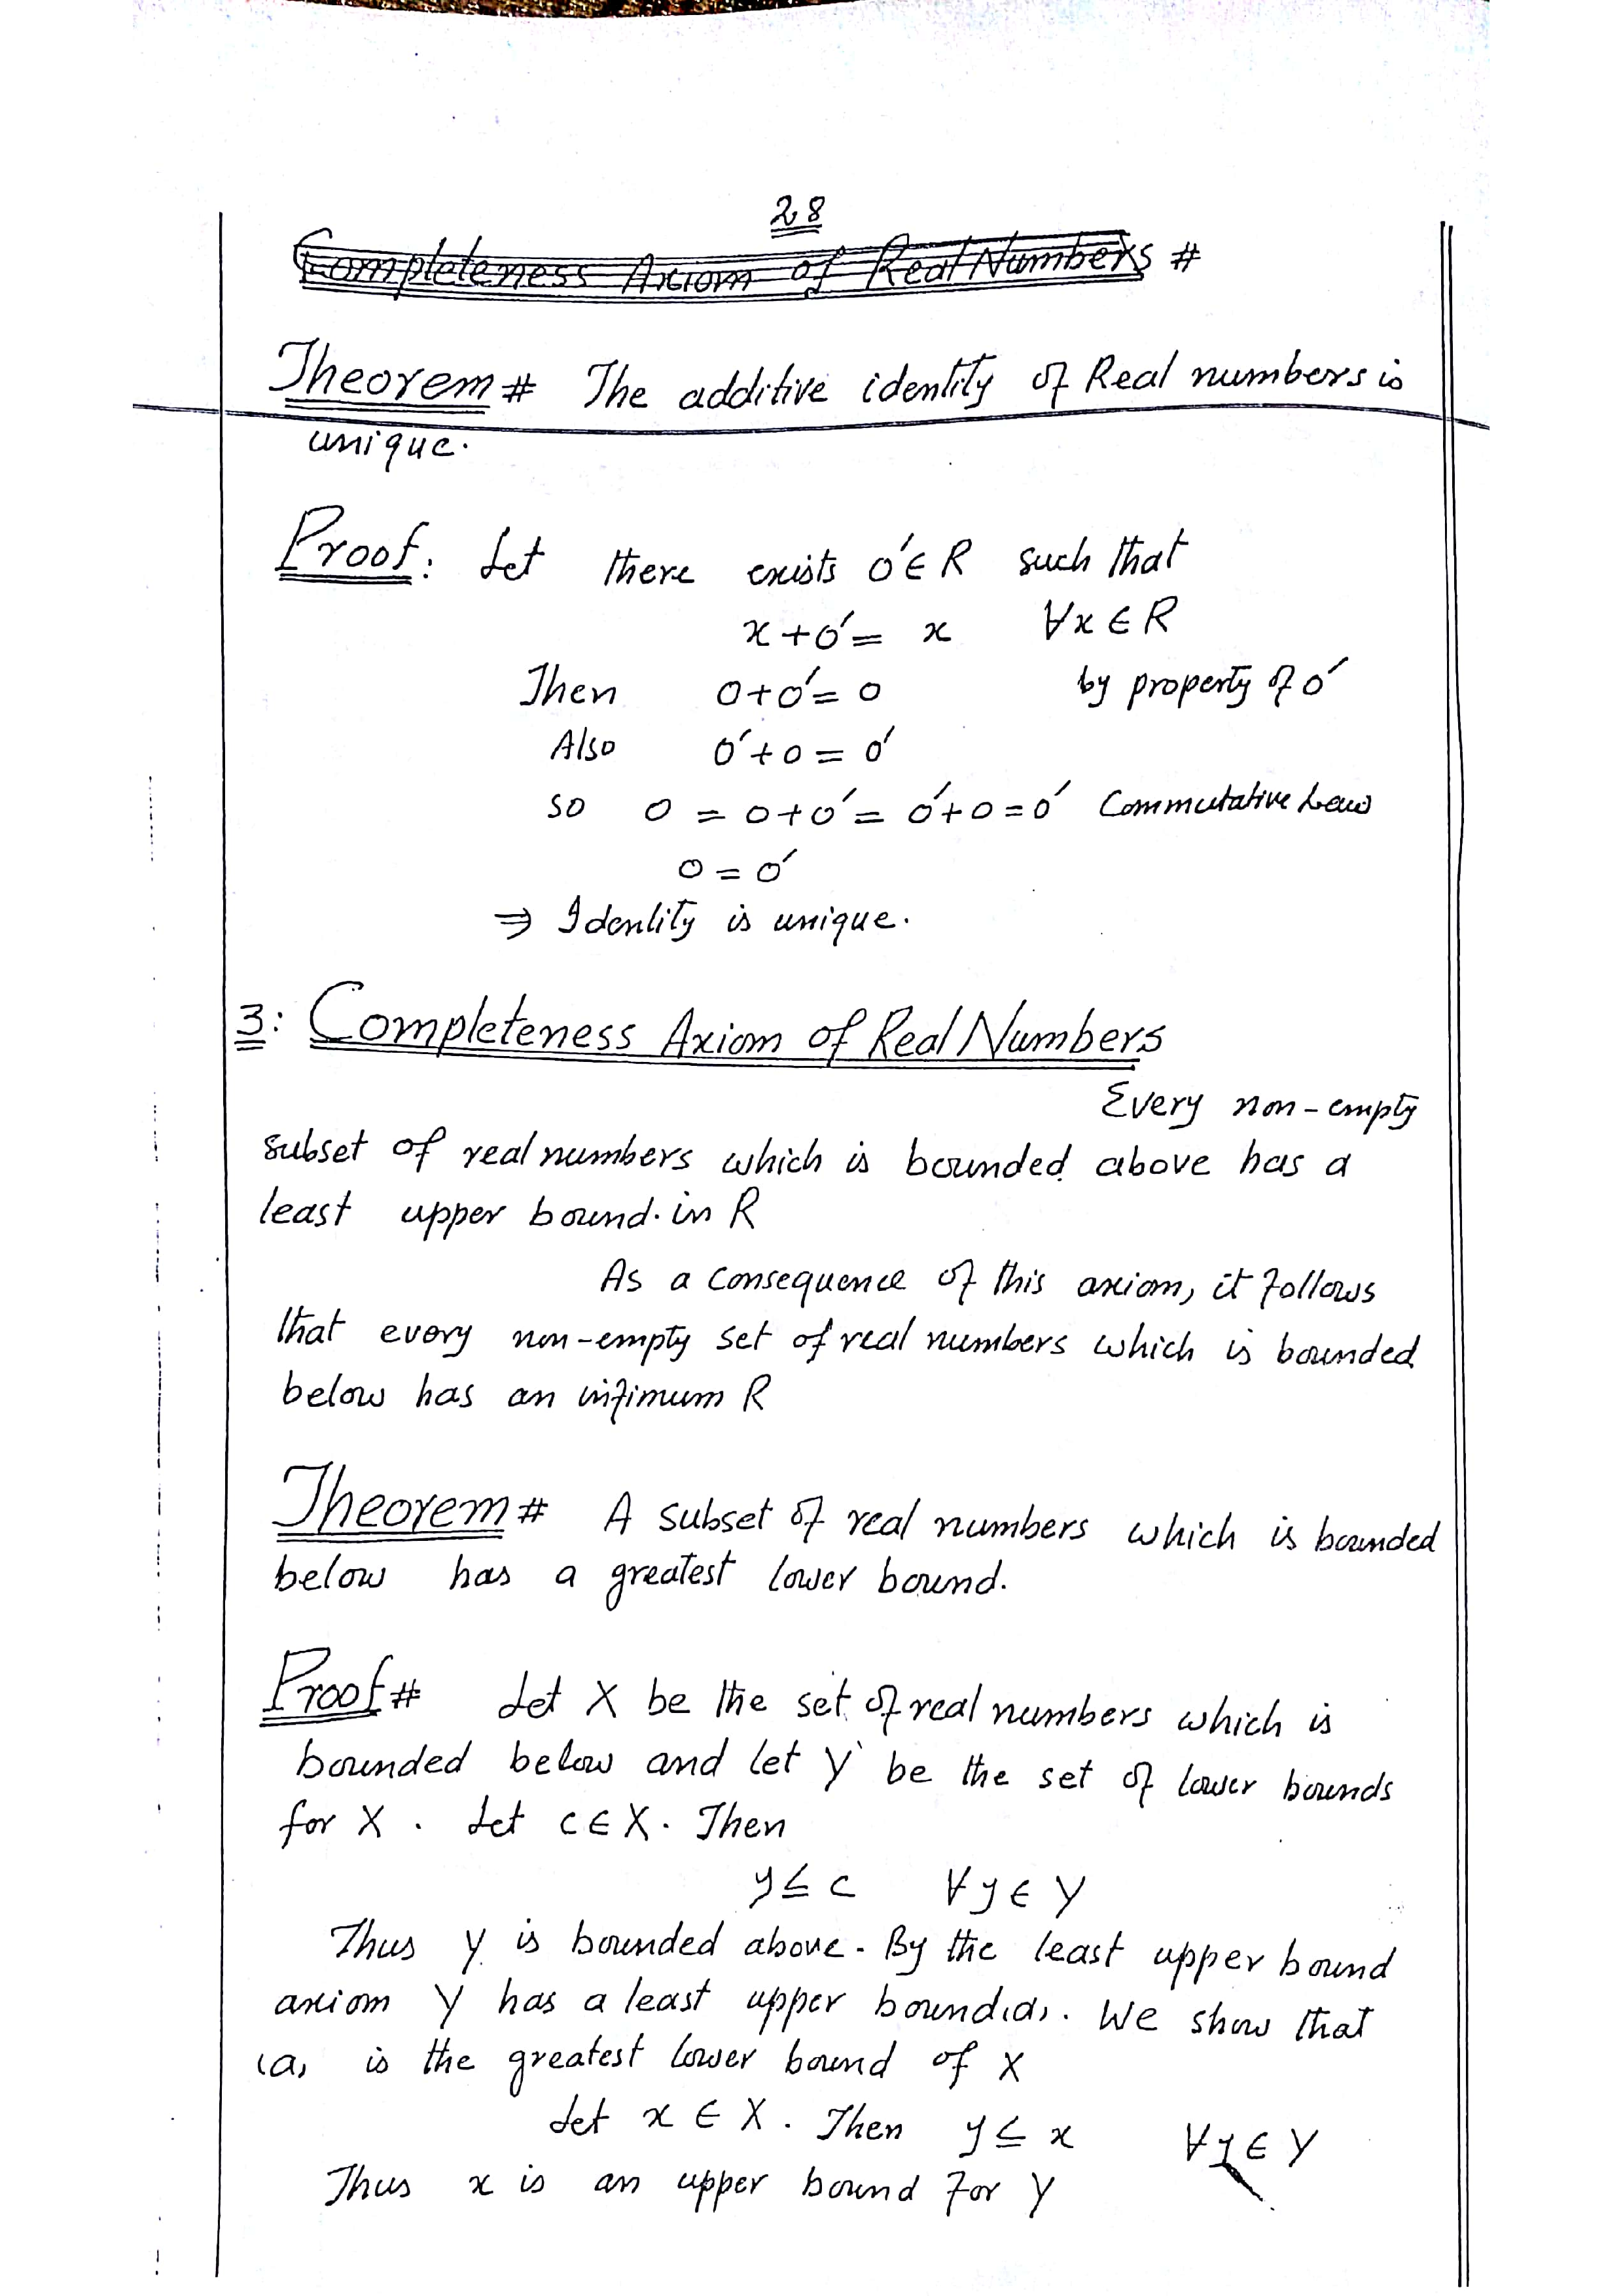 28
Completeness Axiom of Real Numbers #
Theorem # The additive identity of Real numbers is
unique.
Proof: Let there exists 0́ ∈ R such that
x + 0́ = x ∀x ∈ R
Then 0 + 0́ = 0 by property of 0́
Also 0́ + 0 = 0́
so 0 = 0 + 0́ = 0́ + 0 = 0́ Commutative Law
0 = 0́
⇒ Identity is unique.
3: Completeness Axiom of Real Numbers
Every non-empty
subset of real numbers which is bounded above has a
least upper bound. in R
As a consequence of this axiom, it follows
that every non-empty set of real numbers which is bounded
below has an infimum R
Theorem # A subset of real numbers which is bounded
below has a greatest lower bound.
Proof # Let X be the set of real numbers which is
bounded below and let Y be the set of lower bounds
for X. Let c ∈ X. Then
y ≤ c ∀y ∈ Y
Thus Y is bounded above. By the least upper bound
axiom Y has a least upper bound ‘a’. We show that
‘a’ is the greatest lower bound of X
Let x ∈ X. Then y ≤ x ∀y ∈ Y
Thus x is an upper bound for Y